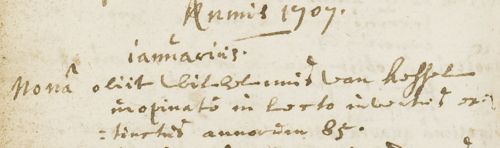 Annus 1707.
ianuarius.
Nonâ obiit Wilhelmus van hessel
inopinatò in lecto inventus ex=
=tinctus annorum 85.